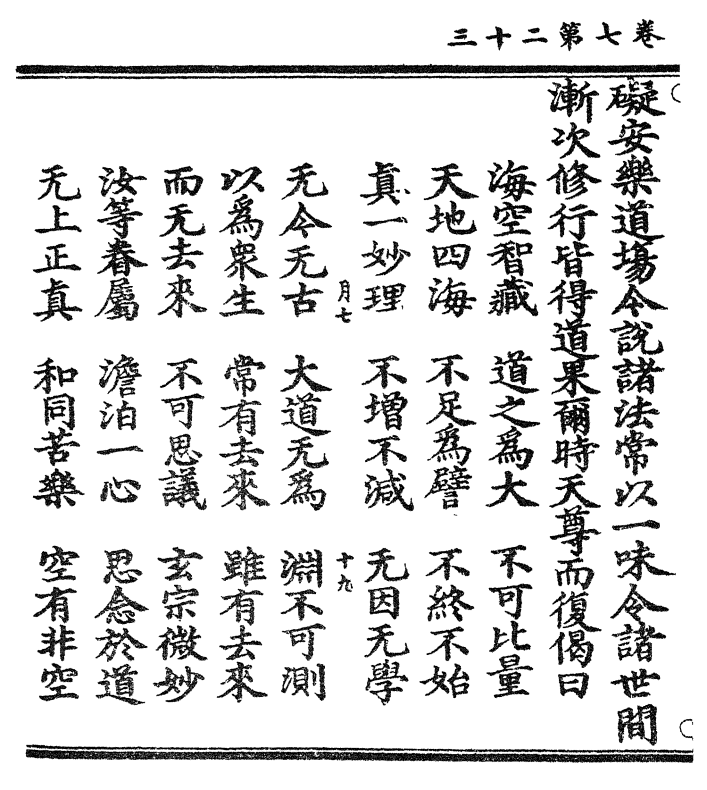 卷七第二十三
礙安樂道場令說諸法常以一味令諸世間
漸次修行皆得道果爾時天尊而復偈曰
海空智藏 道之爲大 不可比量
天地四海 不足爲譬 不終不始
眞一妙理 不增不減 无因无學
月七 十九
无今无古 大道无爲 淵不可測
以爲衆生 常有去來 雖有去來
而无去來 不可思議 玄宗微妙
汝等眷屬 澹泊一心 思念於道
无上正眞 和同苦樂 空有非空